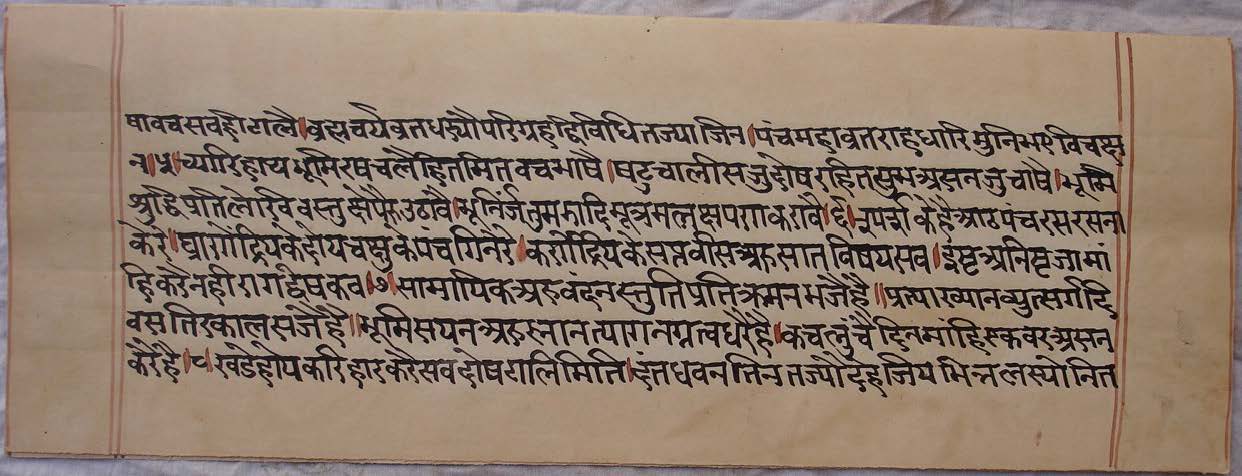 षावचसवही टालै।ब्रह्मचर्यव्रतधर्यौपरिग्रहद्विविधितज्याजिन।पंचमहाव्रतराहधारिमुनिभएविचछ
न।५।च्यारिहाथभूमिरषचलैहितमितवचभाषै।षटुचालीसजुदोषरहितसुभअसनजुचाषै।भूमि
श्रुद्वैप्रतिलेरिववस्तुक्षेपैरुउठावै।भूनिर्जंतुमझादिमूत्रमलक्षपणाकरावै।६।सुपर्शकेहैआठपंचरसरसना
केरे।घ्राणेंद्रियकेदोयचक्षुकेपंचगिनेरे।कर्णेंद्रियकेसप्तवीसअरुसातविषयसव।इष्टअनिष्टजामां
हिकरैनहीरागद्वेषकव।७।सामायिकअरुवंदनस्तुतिप्रतिक्रमनमजैहै॥प्रत्याख्यानव्युत्सर्गादि
वसतिरकालसजैहै॥भूमिसयनअरुस्नानत्यागनग्नत्वधरैहै।कचलुंचैदिनमांहिऽकवरअसन
करैहै।८।खडेहोयकरिहारकरैसवदोषटालिमिति।दंतधवनतिनतज्यौदेहजियभिन्नलस्योनित